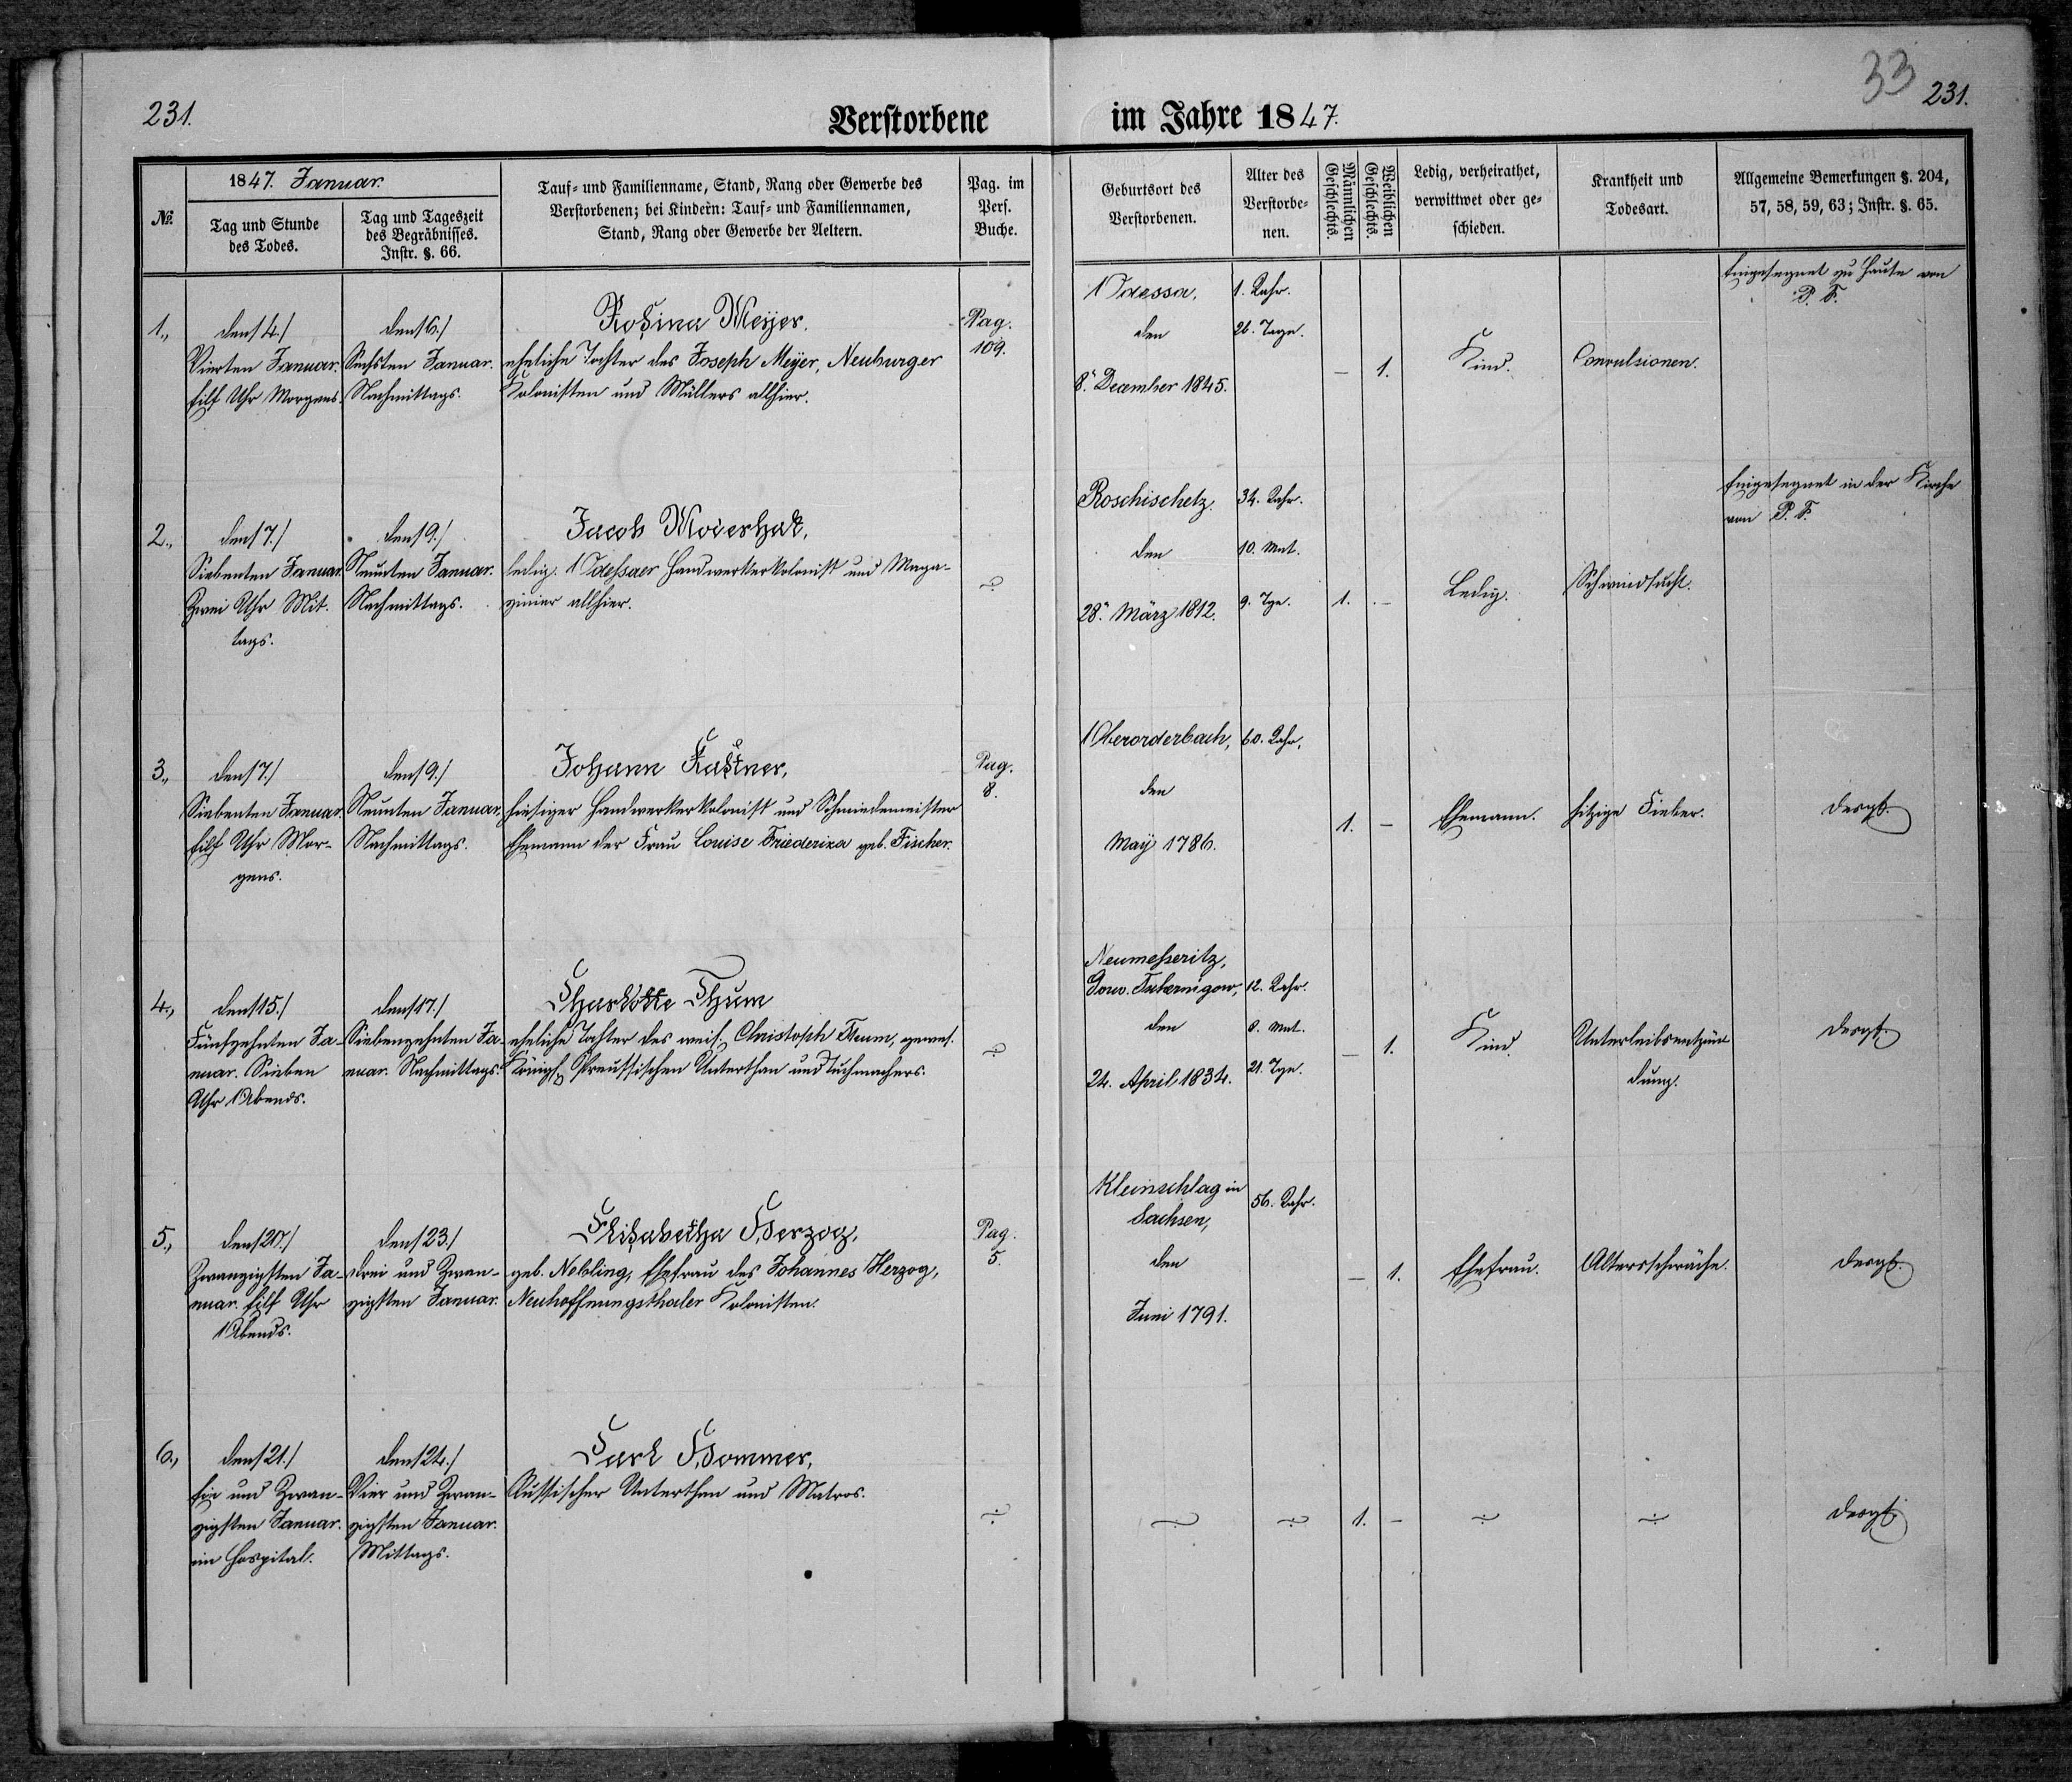 33
231.
231.
Verstorbene
im Jahre 1847.
№.
1847. Januar.
Tag und Stunde
des Todes.
Tag und Tageszeit
des Begräbnisses.
Instr. §. 66.
Tauf- und Familienname, Stand, Rang oder Gewerbe des
Verstorbenen; bei Kindern: Tauf- und Familiennamen,
Stand, Rang oder Gewerbe der Aeltern.
Pag. im
Pers.
Buche.
Geburtsort des
Verstorbenen.
Alter des
Verstorbe-
nen.
Männlichen
Geschlechts.
Weiblichen
Geschlechts.
Ledig, verheirathet,
verwittwet oder ge-
schieden.
Krankheit und
Todesart.
Allgemeine Bemerkungen §. 204,
57, 58, 59, 63; Instr. §. 65.
1.,
den /4./
Vierten Januar.
Eilf Uhr Morgens.
den /6./
Sechsten Januar.
Nachmittags.
Rosina Meyer.
eheliche Tochter des Joseph Meyer, Neuburger
Kolonisten und Müllers allhier.
Pag.
109.
Odessa,
den
8. December 1845.
1. Jahr.
26. Tage.
—
1.
Kind.
Convulsionen.
Eingesegnet zu Hause von
P. F.
2.,
den /7./
Siebenten Januar.
Zwei Uhr Mit-
tags.
den /9./
Neunten Januar.
Nachmittags.
Jacob
ledig. Odessaer Handwerkerkolonist und Maga-
zinier allhier.
Roschischetz.
den
28. März 1812.
34. Jahr.
10. Mnt.
9. Tge.
1.
—
Ledig.
Schwindsucht.
Eingesegnet in der Kirche
von P. F.
3.,
den /7./
Siebenten Januar.
Eilf Uhr Mor-
gens.
den /9./
Neunten Januar.
Nachmittags.
Johann Kastner,
hiesiger Handwerkerkolonist und Schmiedemeister
Ehemann der Frau Louise Friederika geb. Fischer.
Pag.
8.
Oberorderbach,
den
May 1786.
60. Jahr.
1.
—
Ehemann.
hitzige Fieber.
desgl.
4.,
den /15./
Fünfzehnten Ja-
nuar. Sieben
Uhr Abends.
den /17./
Siebenzehnten Ja-
nuar. Nachmittags.
Charlotte Thum
eheliche Tochter des weil. Christoph Thum, gewes.
Königl. Preussischen Unterthan und Tuchmachers.
Neumesseritz,
Gouv. Tschernigow,
den
24. April 1834.
12. Jahr.
8. Mnt.
21. Tge.
—
1.
Kind.
Unterleibsentzün
dung.
desgl.
5.,
den /20./
Zwanzigsten Ja-
nuar. Eilf Uhr
Abends.
den /23./
drei und Zwan-
zigsten Januar.
Elisabetha Herzog,
geb. Nebling, Ehefrau des Johannes Herzog,
Neuhoffnungsthaler Kolonisten.
Pag.
5.
Kleinschlag in
Sachsen,
den
Juni 1791.
56. Jahr.
—
1.
Ehefrau.
Altersschwäche.
desgl.
6.,
den /21./
Ein und Zwan-
zigsten Januar.
im Hospital.
den /24./
Vier und Zwan-
zigsten Januar.
Mittags.
Carl Hommer,
Russischer Unterthan und Matros.
1.
—
desgl.